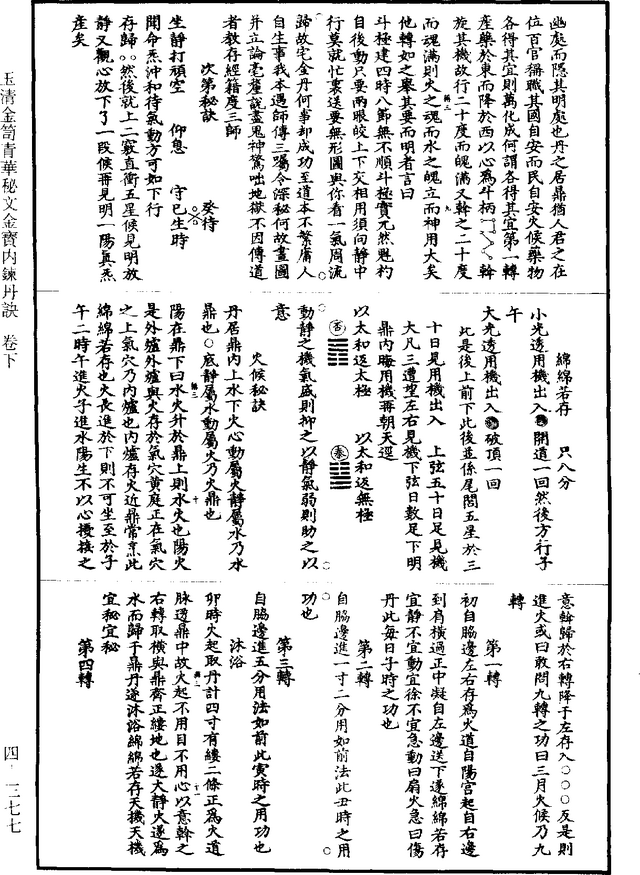 幽處而隱其明處也丹之居鼎猶人君之在
位百官稱職其國自安而民自安火候藥物
各得其宜則萬化成何謂各得其宜第一轉
產藥於東而降於西以心為斗柄斡
旋其機故行二十度而魄滿又斡之二十度
而魂滿則火之魂而水之魄立而神用大矣
他轉如之舉其要而明者言曰
斗極建四時八節無不順斗極實元然魁杓
自後動只要兩眼皎上下交相用須向靜中
行莫就忙裏送要無形圖與你看一氣周流
歸故宅金丹何事却成功至道本不繁庸人
自生事我本遇師傳三囑令深秘何故畫圖
并立論毫釐說盡鬼神驚咄地獄不因傳道
者教存經籍度三師
次第秘訣
癸待
坐靜打頑空 仰息 守巳生時
聞命炁沖和待氣動方可如下行
存歸○○然後就上二竅直衝五星候見明放
靜又觀心放下了一段候再見明一陽真炁
產矣
綿綿若存 只八分
小光透用機出入 開道一回然後方行子
午
大光透用機出入 破頂一回
此是後上前下此後並係尾閭五星於三
十日見用機出入 上弦五十日足見機
大凡三遭望左右見機下弦日數足下明
鼎內晦用機再朝天逕
以太和返太極 以太和返無極
否 泰
動靜之機氣盛則抑之以靜氣弱則助之以
意
火候秘訣
丹居鼎內上水下火心動屬火靜屬水乃水
鼎也○底靜屬水動屬火乃火鼎也
陽在鼎下曰水火升於鼎上則水火也陽火
是外爐外爐與火存於氣穴黃庭正在氣穴
之上氣穴乃內爐也內爐存火近鼎常烹此
綿綿若存也火長進於下則不可坐至於子
午二時午進火子進水陽生不以心擾擾之
意斡歸於右轉降于左存入○○○反是則
進火或曰敢問九轉之功曰三月火候乃九
轉
第一轉
初自脇邊左右存為火道自陽宮起自右邊
到肩橫過正中凝自左邊送下遂綿綿若存
宜靜不宜動宜徐不宜急動曰扇火急曰傷
丹此每日子時之功也
第二轉
自脇邊進一寸二分用如前法此丑時之用
功也
第三轉
自脇邊進五分用法如前此寅時之用功也
沐浴
卯時火起取丹計四寸有縷二條正為火道
脉透鼎中故火起不用目不用心以意斡之
右轉取橫與鼎齊正縷地也遂大靜火遂為
水而歸于鼎丹遂沐浴綿綿若存天機天機
宜秘宜秘
第四轉
玉清金笥青華秘文金寶內鍊丹訣 卷下
四-三七七